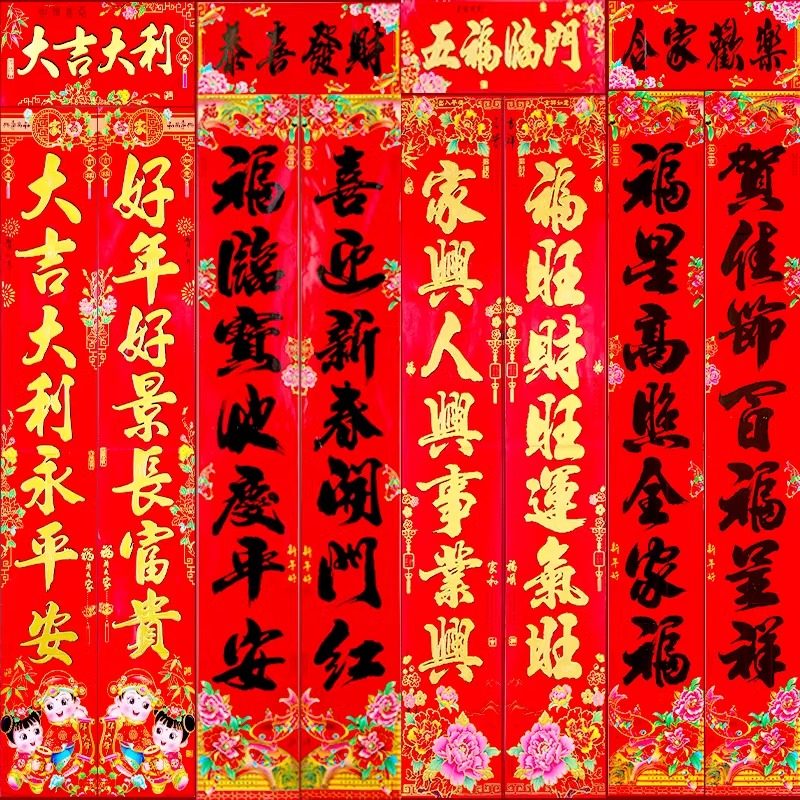 大吉大利
好年好景長富貴
大吉大利永平安
恭喜發財
喜迎新春開門红
福臨寶地慶平安
新年好
新年好
五福临門
福旺財旺運氣旺
家興人興事業興
福順
家和
合家歡樂
賀佳節百福呈祥
福星高照全家福
新年好
新年好